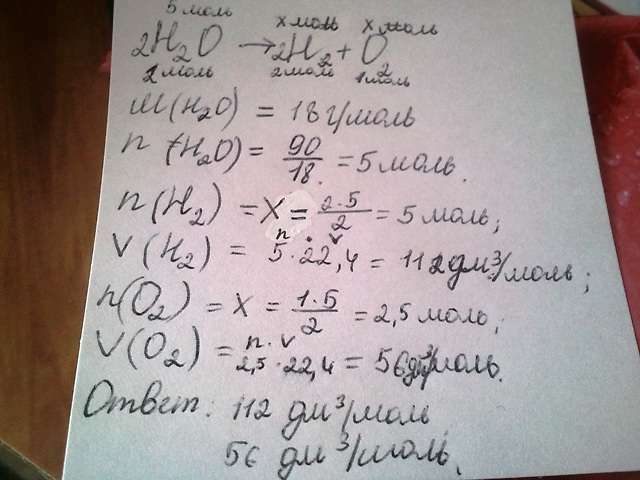 5 моль х моль х моль
2H₂O → 2H₂ + O₂
2 моль 2 моль 1 моль
M(H₂O) = 18 г/моль
n (H₂O) = 90/18 = 5 моль.
n(H₂) = X = 2·5/2 = 5 моль;
n v
V(H₂) = 5·22,4 = 112 дм³/моль;
n(O₂) = X = 1·5/2 = 2,5 моль;
n · v
V(O₂) = 2,5·22,4 = 56 дм³/моль.
Ответ: 112 дм³/моль
56 дм³/моль.